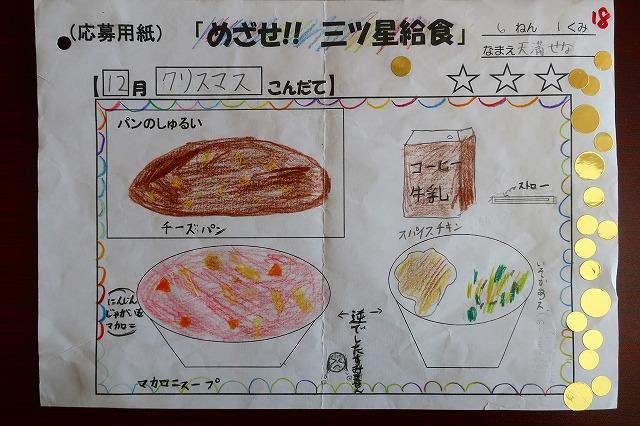 (応募用紙)「めざせ!! 三ツ星給食」
18
6ねん 1くみ
なまえ 天満せな
【12月 クリスマス こんだて】
パンのしゅるい
チーズパン
コーヒー
牛乳
ストロー
スパイスチキン
にんじん
じゃがいも
マカロニ
マカロニスープ
←→
逆でしたすみません